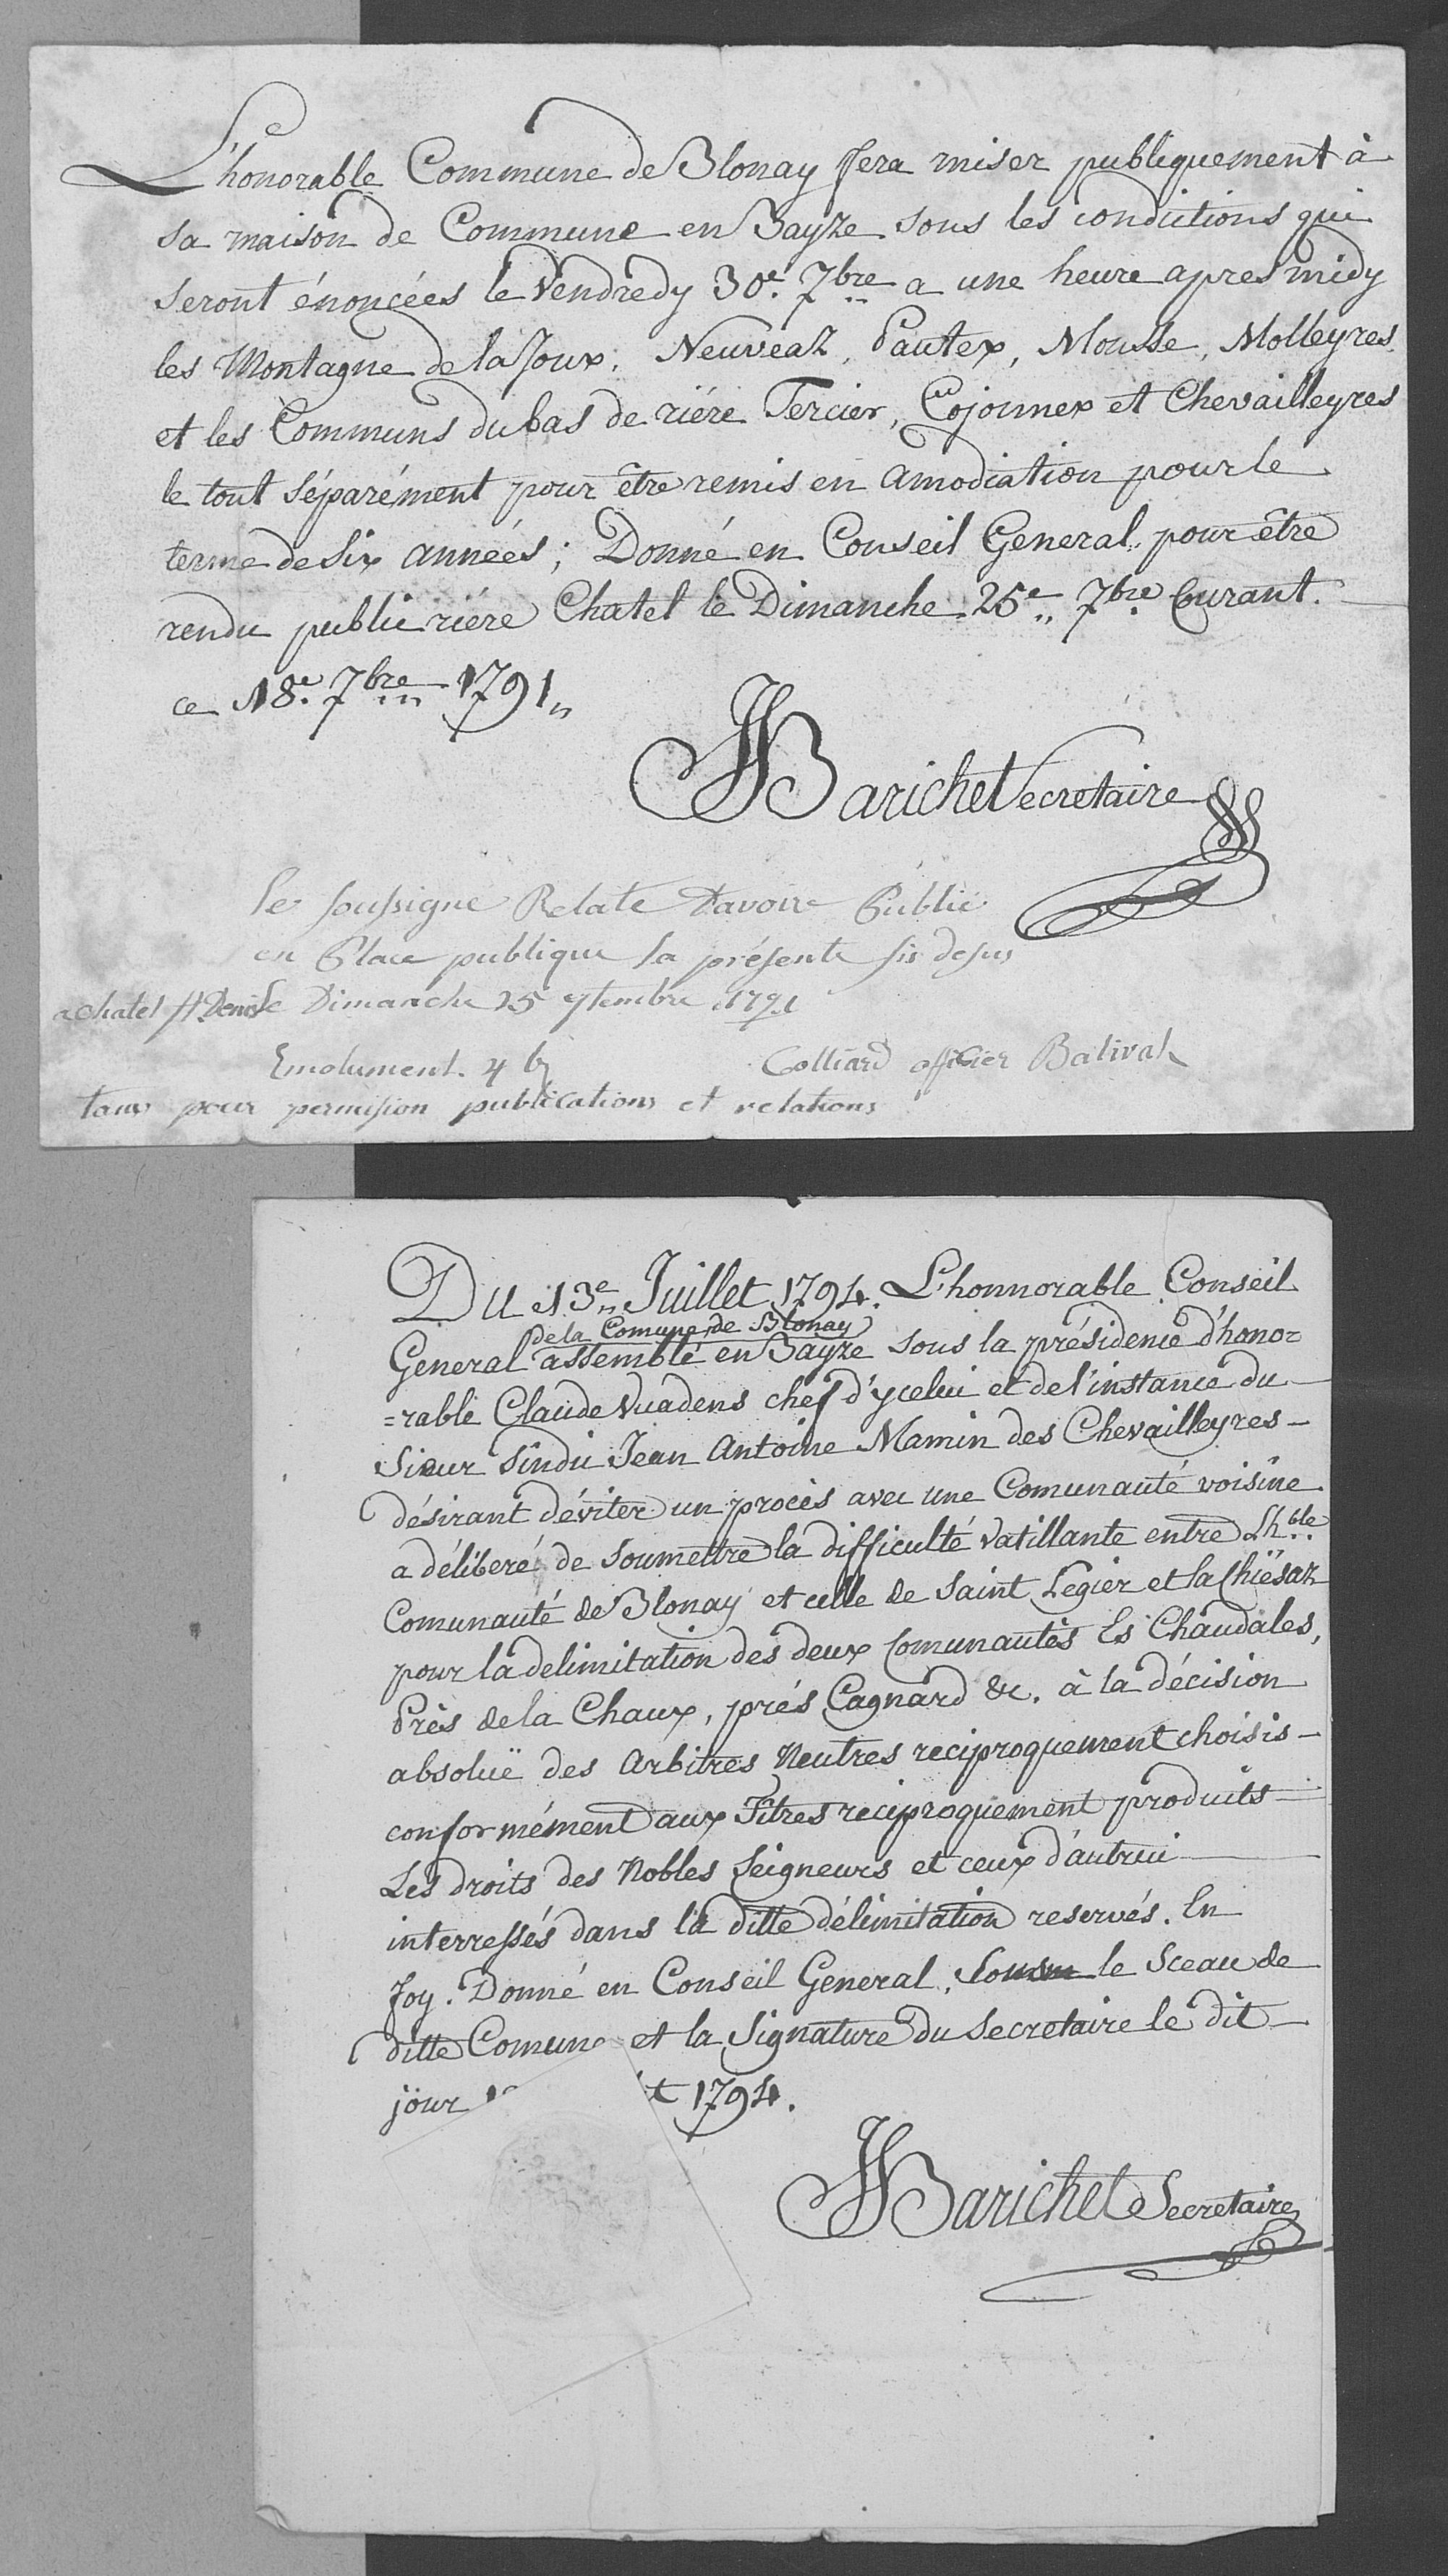 L'honorable Commune de Blonay fera miser publiquement à
sa maison de Commune en Bayze sous les conditions qui
seront énoncées le Vendredy 30e. 7bre a une heure apres midy
les Montagne de la Joux, Neuveaz, Pautex, Mousse, Molleyres
et les Communs du bas de riére Tercier, Cojonnex et Chevailleyres
le tout séparément pour être remis en amodiation pour le
terme de six années; Donné en Conseil General, pour être
rendu public riére Chatel le Dimanche 25e,, 7bre Courant.
ce 18e. 7bre 1791,,
JJBarichet Secretaire
le soussigné Relate Davoir Publié
en Place publique la présente sis desus
a Chatel St Denis le Dimanche 25 7tembre 1791
Emolument. 4 bz Colliard officier Balival
taux pour permission publications et relations
Du 13e,, Juillet 1794. L'honnorable Conseil
de la Comune de Blonay
General assemblé en Bayze sous la présidence d'hono=
=rable Claude Vuadens chef d'ycelui et de l'instance du
Sieur Sindic Jean Antoine Mamin des Chevailleyres -
désirant d'éviter un procès avec une Comunauté voisine
a délibéré de soumettre la difficulté vatillante entre Lhble
Comunauté de Blonay et celle de Saint Legier et la Chiésaz
pour la delimitation des deux Comunautés Es Chaudales,
Près de la Chaux, prés Cagnard &c. à la décision
absoluë des Arbitres Neutres reciproquement choisis -
conformément aux Titres reciproquement produits
Les droits des Nobles Seigneurs et ceux d'autrui
interressés dans la ditte délimitation reservés. En
foy. Donné en Conseil General, sous le Sceau de
ditte Comune et la Signature du Secretaire le dit
jour t 1794.
JJBarichet Secretaire